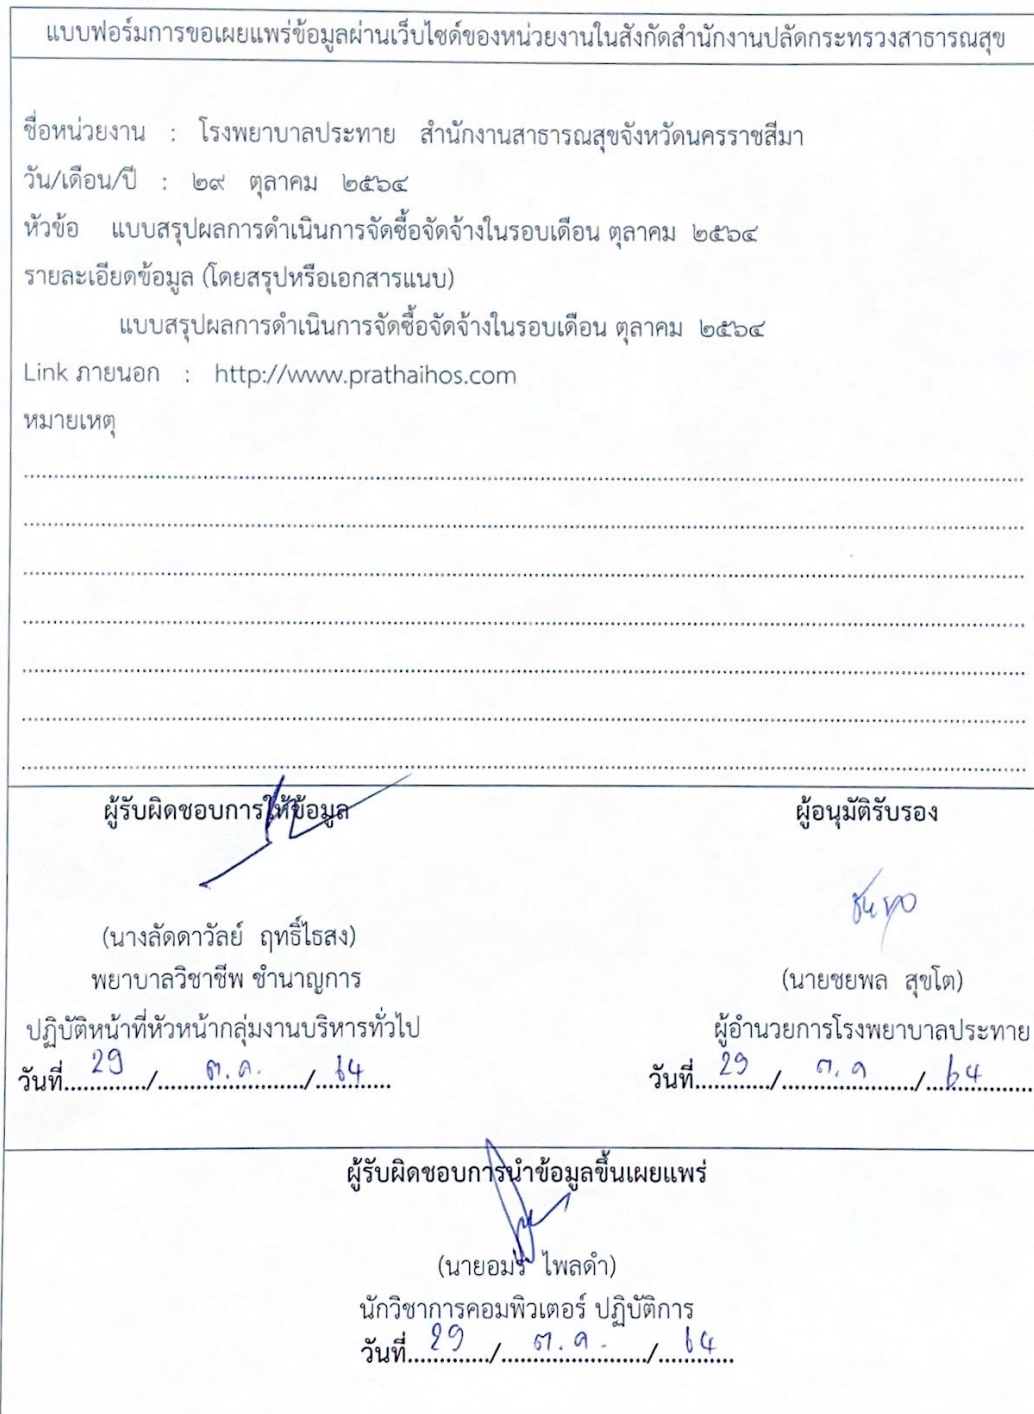 แบบฟอร์มการขอเผยแพร่ข้อมูลผ่านเว็บไซต์ของหน่วยงานในสังกัดสำนักงานปลัดกระทรวงสาธารณสุข
ชื่อหน่วยงาน : โรงพยาบาลประทาย สำนักงานสาธารณสุขจังหวัดนครราชสีมา
วัน/เดือน/ปี : ๒๙ ตุลาคม ๒๕๖๔
หัวข้อ แบบสรุปผลการดำเนินการจัดซื้อจัดจ้างในรอบเดือน ตุลาคม ๒๕๖๔
รายละเอียดข้อมูล (โดยสรุปหรือเอกสารแนบ)
แบบสรุปผลการดำเนินการจัดซื้อจัดจ้างในรอบเดือน ตุลาคม ๒๕๖๔
Link ภายนอก : http://www.prathaihos.com
หมายเหตุ
ผู้รับผิดชอบการให้ข้อมูล
(นางลัดดาวัลย์ ฤทธิ์ไธสง)
พยาบาลวิชาชีพ ชำนาญการ
ปฏิบัติหน้าที่หัวหน้ากลุ่มงานบริหารทั่วไป
วันที่ 29 / ต.ค. / 64
ผู้อนุมัติรับรอง
(นายชยพล สุขโต)
ผู้อำนวยการโรงพยาบาลประทาย
วันที่ 29 / ต.ค / 64
ผู้รับผิดชอบการนำข้อมูลขึ้นเผยแพร่
(นายอมร ไพลดำ)
นักวิชาการคอมพิวเตอร์ ปฏิบัติการ
วันที่ 29 / ต.ค. / 64